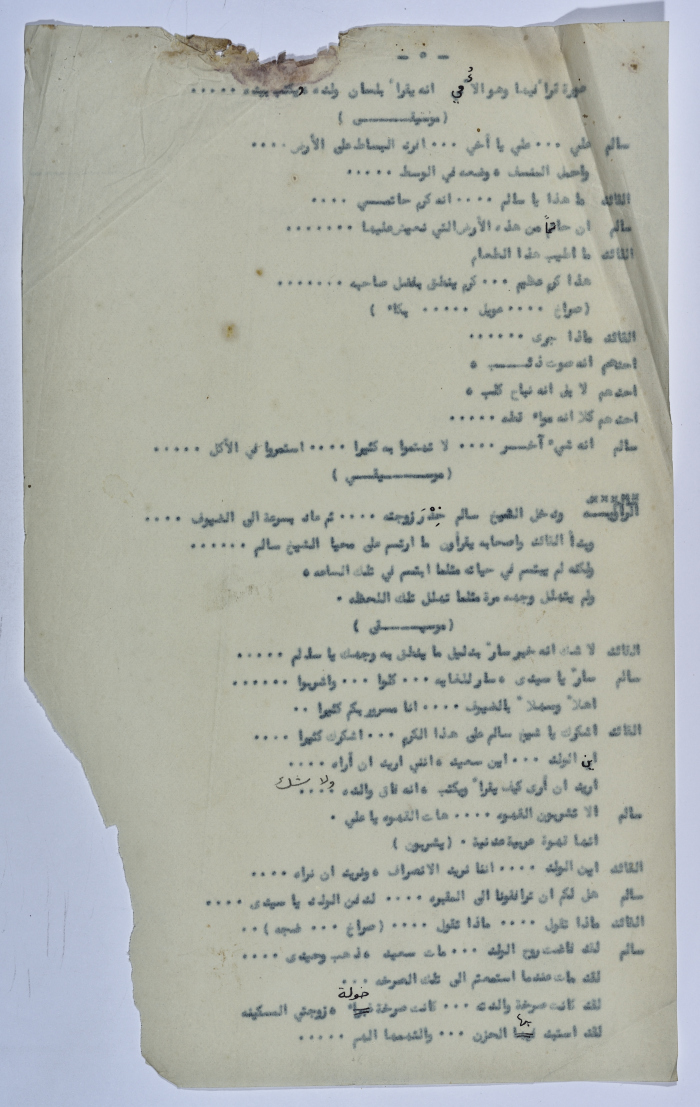 - ٥ -
صورة تراثيها وهو الأُمي انه يقرأ بلسان ولده ويكتب بيده ٠٠٠٠٠
( موسيقــــــى )
سالم علي ٠٠٠ علي يا أخي ٠٠٠ افرد البساط على الأرض ٠٠٠٠
واحمل المنسف ، وضعه في الوسط ٠٠٠٠٠
القائد ما هذا يا سالم ٠٠٠٠ انه كرم حاتمـــي ٠٠٠٠
سالم ان حاتماً من هذه الأرض التي نعيش عليها ٠٠٠٠٠٠٠
القائد ما اطيب هذا الطعام
هذا كرم عظيم ٠٠٠ كرم ينطق بفضل صاحبه ٠٠٠٠٠٠٠
( صراخ ٠٠٠٠ عويل ٠٠٠٠٠ بكاء )
القائد ماذا جرى ٠٠٠٠٠٠
احدهم انه صوت ذئــــب ،
احدهم لا بل انه نباح كلب ،
احدهم كلا انه مواء قطه ٠٠٠٠٠
سالم انه شيء آخـــر ٠٠٠٠ لا تهتموا به كثيرا ٠٠٠٠ استمروا في الأكل ٠٠٠٠٠
( موســــيقــي )
الراويـــه ودخل الشيخ سالم خِدْرَ زوجته ٠٠٠٠ ثم عاد بسرعة الى الضيوف ٠٠٠٠
وبدأ القائد واصحابه يقرأون ما ارتسم على محيا الشيخ سالم ٠٠٠٠٠٠
ولكنه لم يبتسم في حياته مثلما ابتسم في تلك الساعه ،
ولم يتهلل وجهه مرة مثلما تهلل تلك اللحظه ٠
( موسيـــــقى )
القائد لا شك انه خبر سارّ بدليل ما ينطق به وجهك يا سالم ٠٠٠٠٠
سالم سارّ يا سيدى ، سار للغايه ٠٠٠ كلوا ٠٠٠ واشربوا ٠٠٠٠٠٠
اهلاً وسهلاً بالضيوف ٠٠٠٠ انا مسرور بكم كثيرا ٠٠
القائد اشكرك يا شيخ سالم على هذا الكرم ٠٠٠ اشكرك كثيرا ٠٠٠٠
اين الولد ٠٠٠ اين سعيد ، انني اريد ان أراه ٠٠٠٠
اريد ان أرى كيف يقرأ ويكتب ، انه فاق والده ولا شك ٠٠٠٠
سالم الا تشربون القهوه ٠٠٠٠ هات القهوه يا علي ٠
انها قهوة عربية عدنية ٠ ( يشربون )
القائد اين الولد ٠٠٠٠ اننا نريد الانصراف ، ونريد ان نراه ٠٠٠٠
سالم هل لكم ان ترافقونا الى المقبره ٠٠٠٠ لدفن الولد يا سيدى ٠٠٠٠
القائد ماذا تقول ٠٠٠٠ ماذا تقول ٠٠٠٠ ( صراخ ٠٠٠ ضجه ) ٠٠
سالم لقد فاضت روح الولد ٠٠٠ مات سعيد ، ذهب وحيدى ٠٠٠٠
لقد مات عندما استمعتم الى تلك الصرخه ٠٠٠
لقد كانت صرخة والدته ٠٠٠ كانت صرخة خولة ، زوجتي المسكينه
لقد استبد بها الحزن ٠٠٠ والتهمها الهم ٠٠٠٠٠